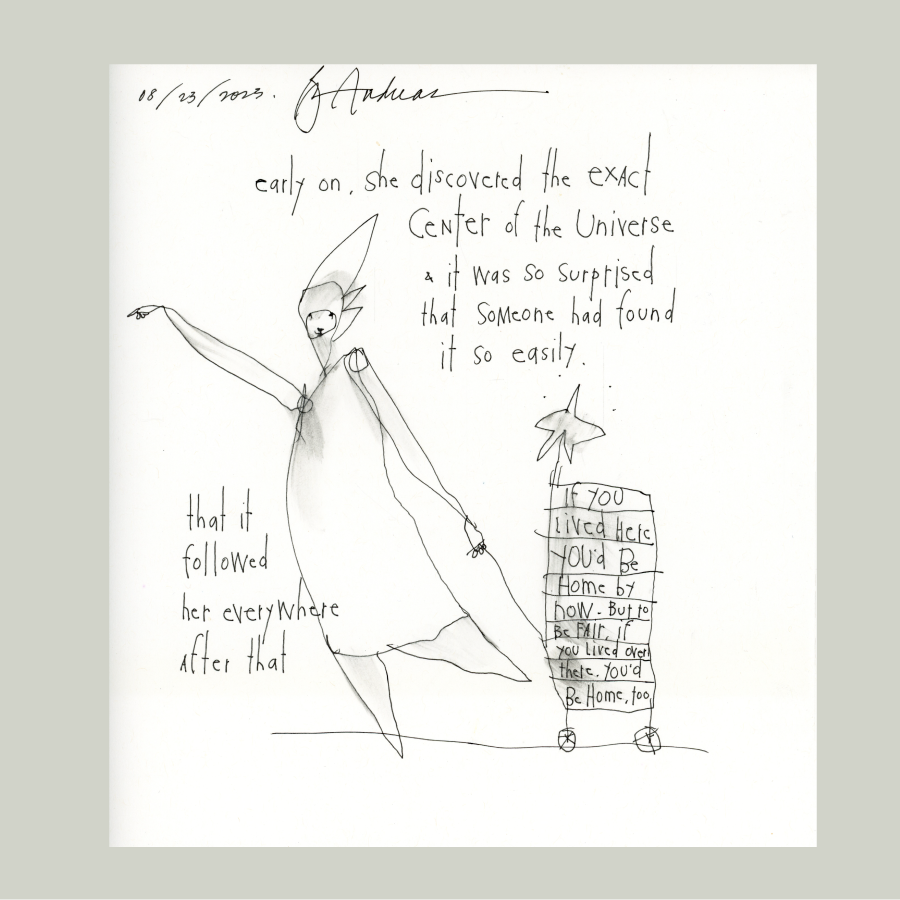 08/23/2023. by Andreas
early on, she discovered the exact
Center of the Universe
& it was so surprised
that someone had found
it so easily.
that it
followed
her everywhere
after that
If you
lived here
you'd Be
Home by
now. But to
Be fair, if
you lived over
there, you'd
Be Home, too,